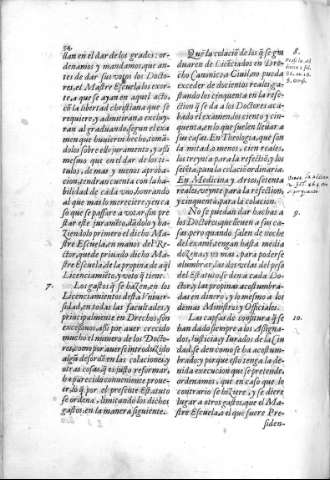 54
llan en el dar de los grados: or-
denamos y mandamos, que an-
tes de dar sus votos los Docto-
res, el Mastre Escuela los exor-
te, a que se ayan en aquel acto,
cō la libertad christiana que se
requiere, y admitan o excluy-
ran al graduando, segun el exa-
men que huuieren hecho, tomã-
doles sobre ello juramento, y assi
mesmo que en el dar de los ti-
tulos, de mas y menos aproba-
cion, tendran cuenta con la ha-
bilidad de cada vno, honrando
al que mas lo mereciere, y en ca
so que se passare a votar sin pre
star este juramēto, dādolo y ha-
ziendolo primero el dicho Ma-
stre Escuela, en manos del Re-
ctor, quede priuado dicho Ma-
stre Escuela, de la propina de aql̃
Licenciamiēto, y voto q̃ tiene.
7. Los gastos q̃ se hazen, en los
Licenciamientos desta Vniuer-
sidad, en todas las facultades, y
principalmente en Derechos, son
excessiuos, assi por auer crecido
mucho el numero de los Docto-
res, como por auerse introduzido
algũ desordē en las colaciones, y
otras cosas, q̃ es justo reformar,
ha parecido conueniente proue-
er, q̃ por el presente Estatuto
se ordena, limitando los dichos
gastos, en la manera siguiente.
Que la colaciō de los q̃ se gra
duaren de Licēciados en Dere-
cho Canonico, o Ciuil, no pueda
exceder de docientos reales, ga-
stando los cinquenta en la refe-
ction q̃ se da a los Doctores aca-
bado el examen, los ciento y cin-
quenta, en lo que suelen lleuar a
sus casas. En Theologia, que son
la mitad, o menos, cien reales,
los treynta para la refectiō, y los
setēta, para la colaciō ordinaria.
En Medicina y Artes, setenta
reales, veynte para la refection,
y cinquenta, para la colacion.
No se puedan dar hachas a
los Doctores, que lleuen a sus ca-
sas, pero quando salen de noche
del examē, tengan hasta media
dozena, y no mas, para poderse
alumbrar, las dos velas del peso
del Estatuto se den a cada Doc-
tor, y las propinas acostumbra-
das en dinero, y lo mesmo a los
demas Ministros y Officiales.
Las caxas de confitura q̃ se
han dado siempre a los Assigna-
dos, Iusticia, y Iurados de la Ciu
dad, se den como se ha acostum-
brado: y porque esto tenga la de-
uida execucion que se pretende,
ordenamos, que en caso que lo
contrario se hiziere, y se diere
lugar a otros gastos, que el Ma-
stre Escuela, o el que fuere Pre-
siden-
8.
9.
10.